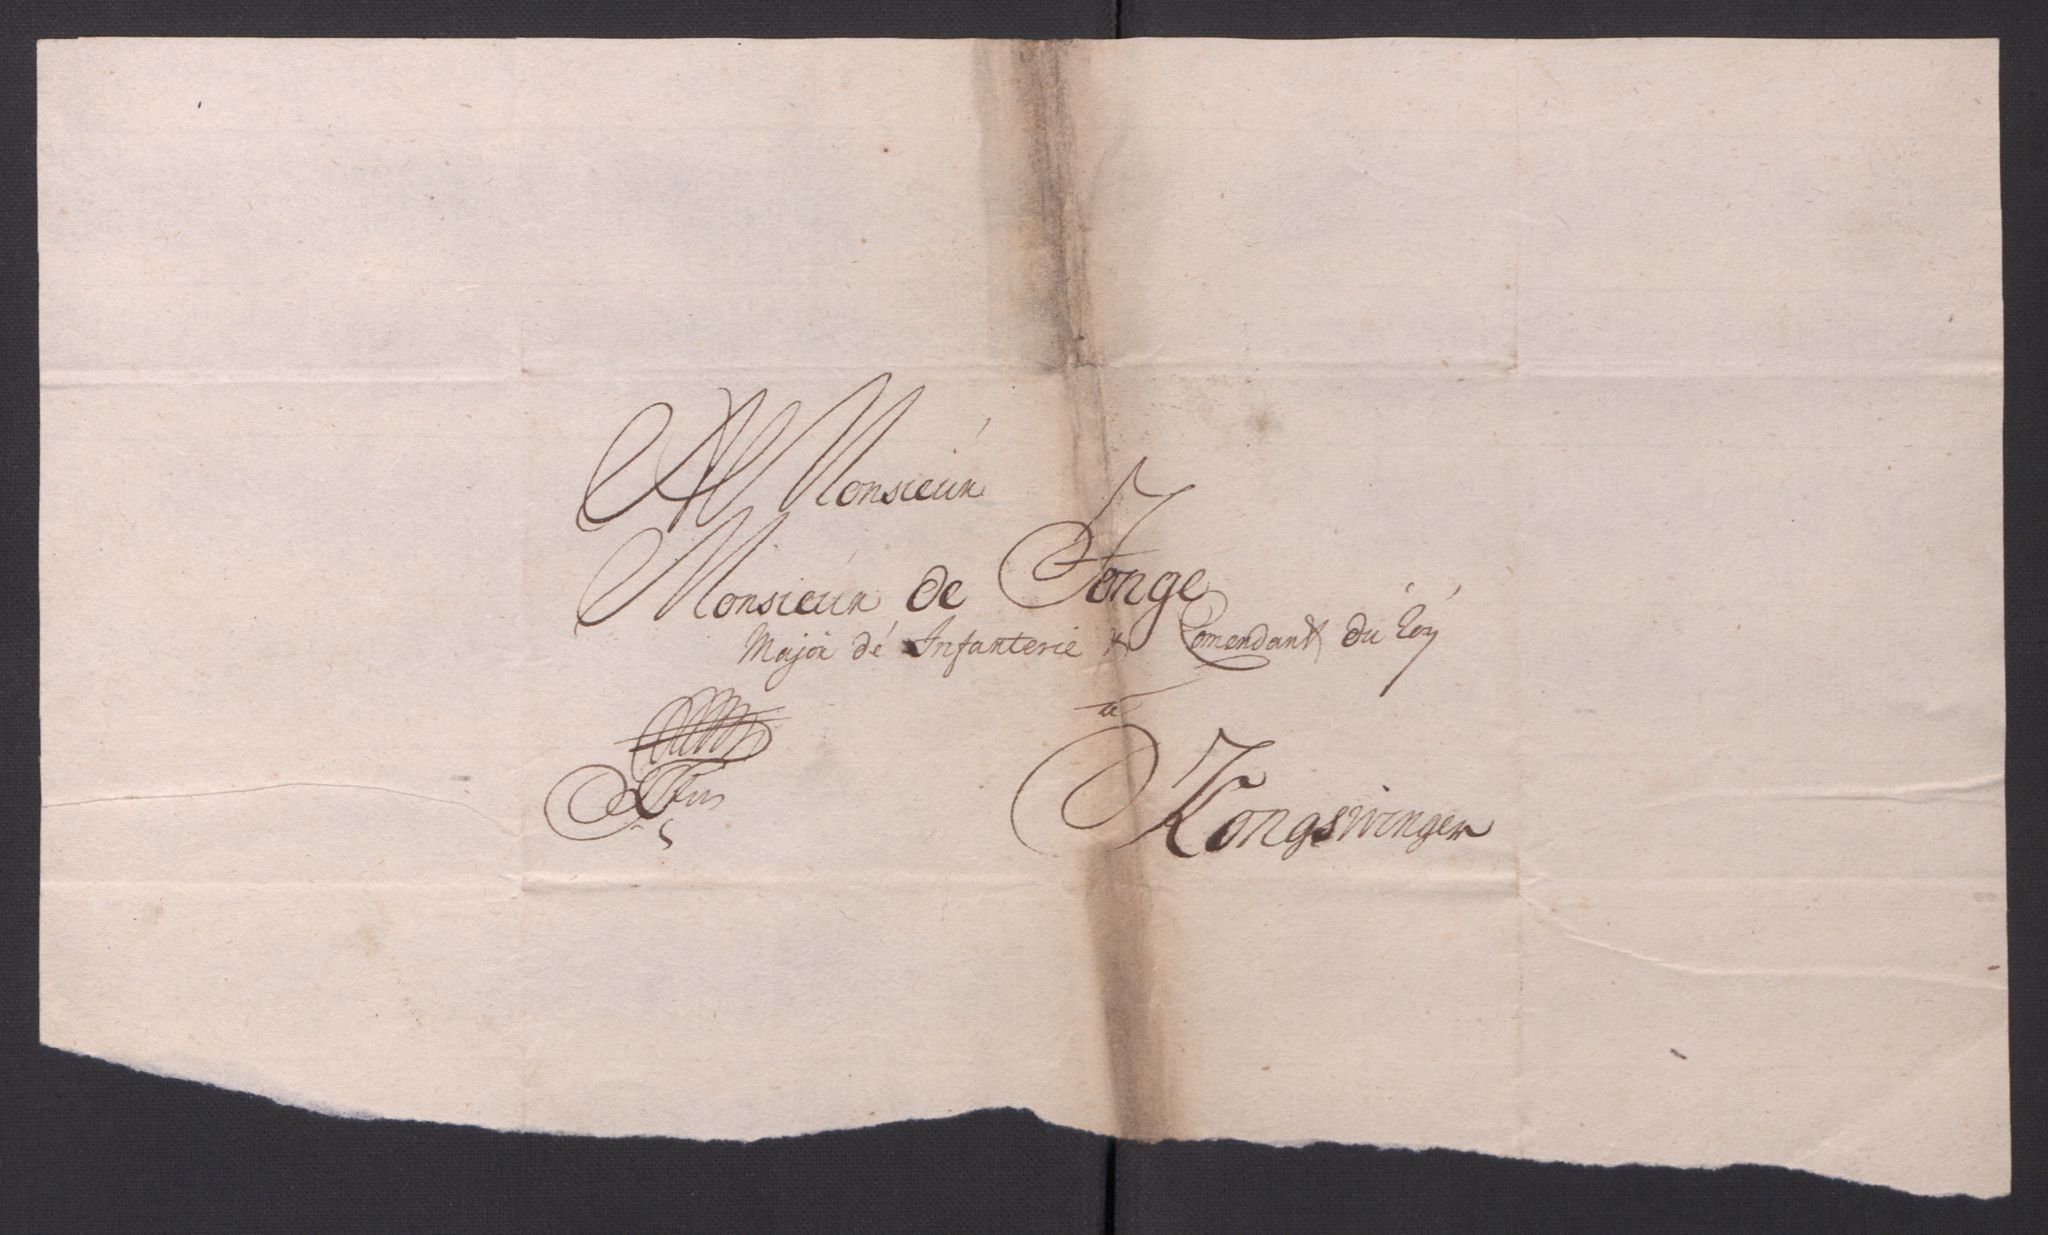 A Monsieur
Monsieur de Jonge
Major dé Infanterie & Comendant du Roy
a
Kongswinger